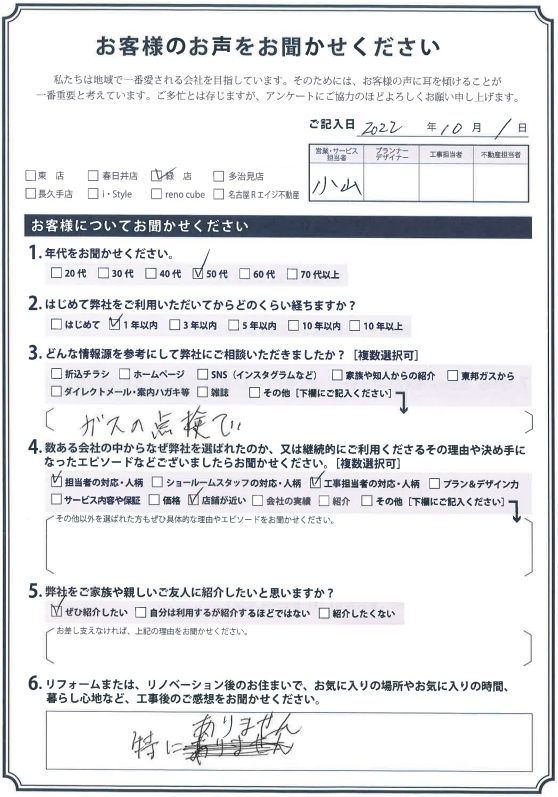 お客様のお声をお聞かせください
私たちは地域で一番愛される会社を目指しています。そのためには、お客様の声に耳を傾けることが
一番重要と考えています。ご多忙とは存じますが、アンケートにご協力のほどよろしくお願い申し上げます。
ご記入日 2022 年 10 月 1 日
営業・サービス担当者 プランナーデザイナー 工事担当者 不動産担当者
小山
□東 店 □春日井店 ☑緑 店 □多治見店
□長久手店 □i・Style □reno cube □名古屋Rエイジ不動産
お客様についてお聞かせください
1. 年代をお聞かせください。
□20代 □30代 □40代 ☑50代 □60代 □70代以上
2. はじめて弊社をご利用いただいてからどのくらい経ちますか?
□はじめて ☑1年以内 □3年以内 □5年以内 □10年以内 □10年以上
3. どんな情報源を参考にして弊社にご相談いただきましたか?[複数選択可]
□折込チラシ □ホームページ □SNS(インスタグラムなど) □家族や知人からの紹介 □東邦ガスから
□ダイレクトメール・案内ハガキ等 □雑誌 □その他[下欄にご記入ください]
ガスの点検で
4. 数ある会社の中からなぜ弊社を選ばれたのか、又は継続的にご利用くださるその理由や決め手に
なったエピソードなどございましたらお聞かせください。[複数選択可]
☑担当者の対応・人柄 □ショールームスタッフの対応・人柄 ☑工事担当者の対応・人柄 □プラン&デザイン力
□サービス内容や保証 □価格 ☑店舗が近い □会社の実績 □紹介 □その他[下欄にご記入ください]
その他以外を選ばれた方もぜひ具体的な理由やエピソードをお聞かせください。
5. 弊社をご家族や親しいご友人に紹介したいと思いますか?
☑ぜひ紹介したい □自分は利用するが紹介するほどではない □紹介したくない
お差し支えなければ、上記の理由をお聞かせください。
6. リフォームまたは、リノベーション後のお住まいで、お気に入りの場所やお気に入りの時間、
暮らし心地など、工事後のご感想をお聞かせください。
ありません
特にありません